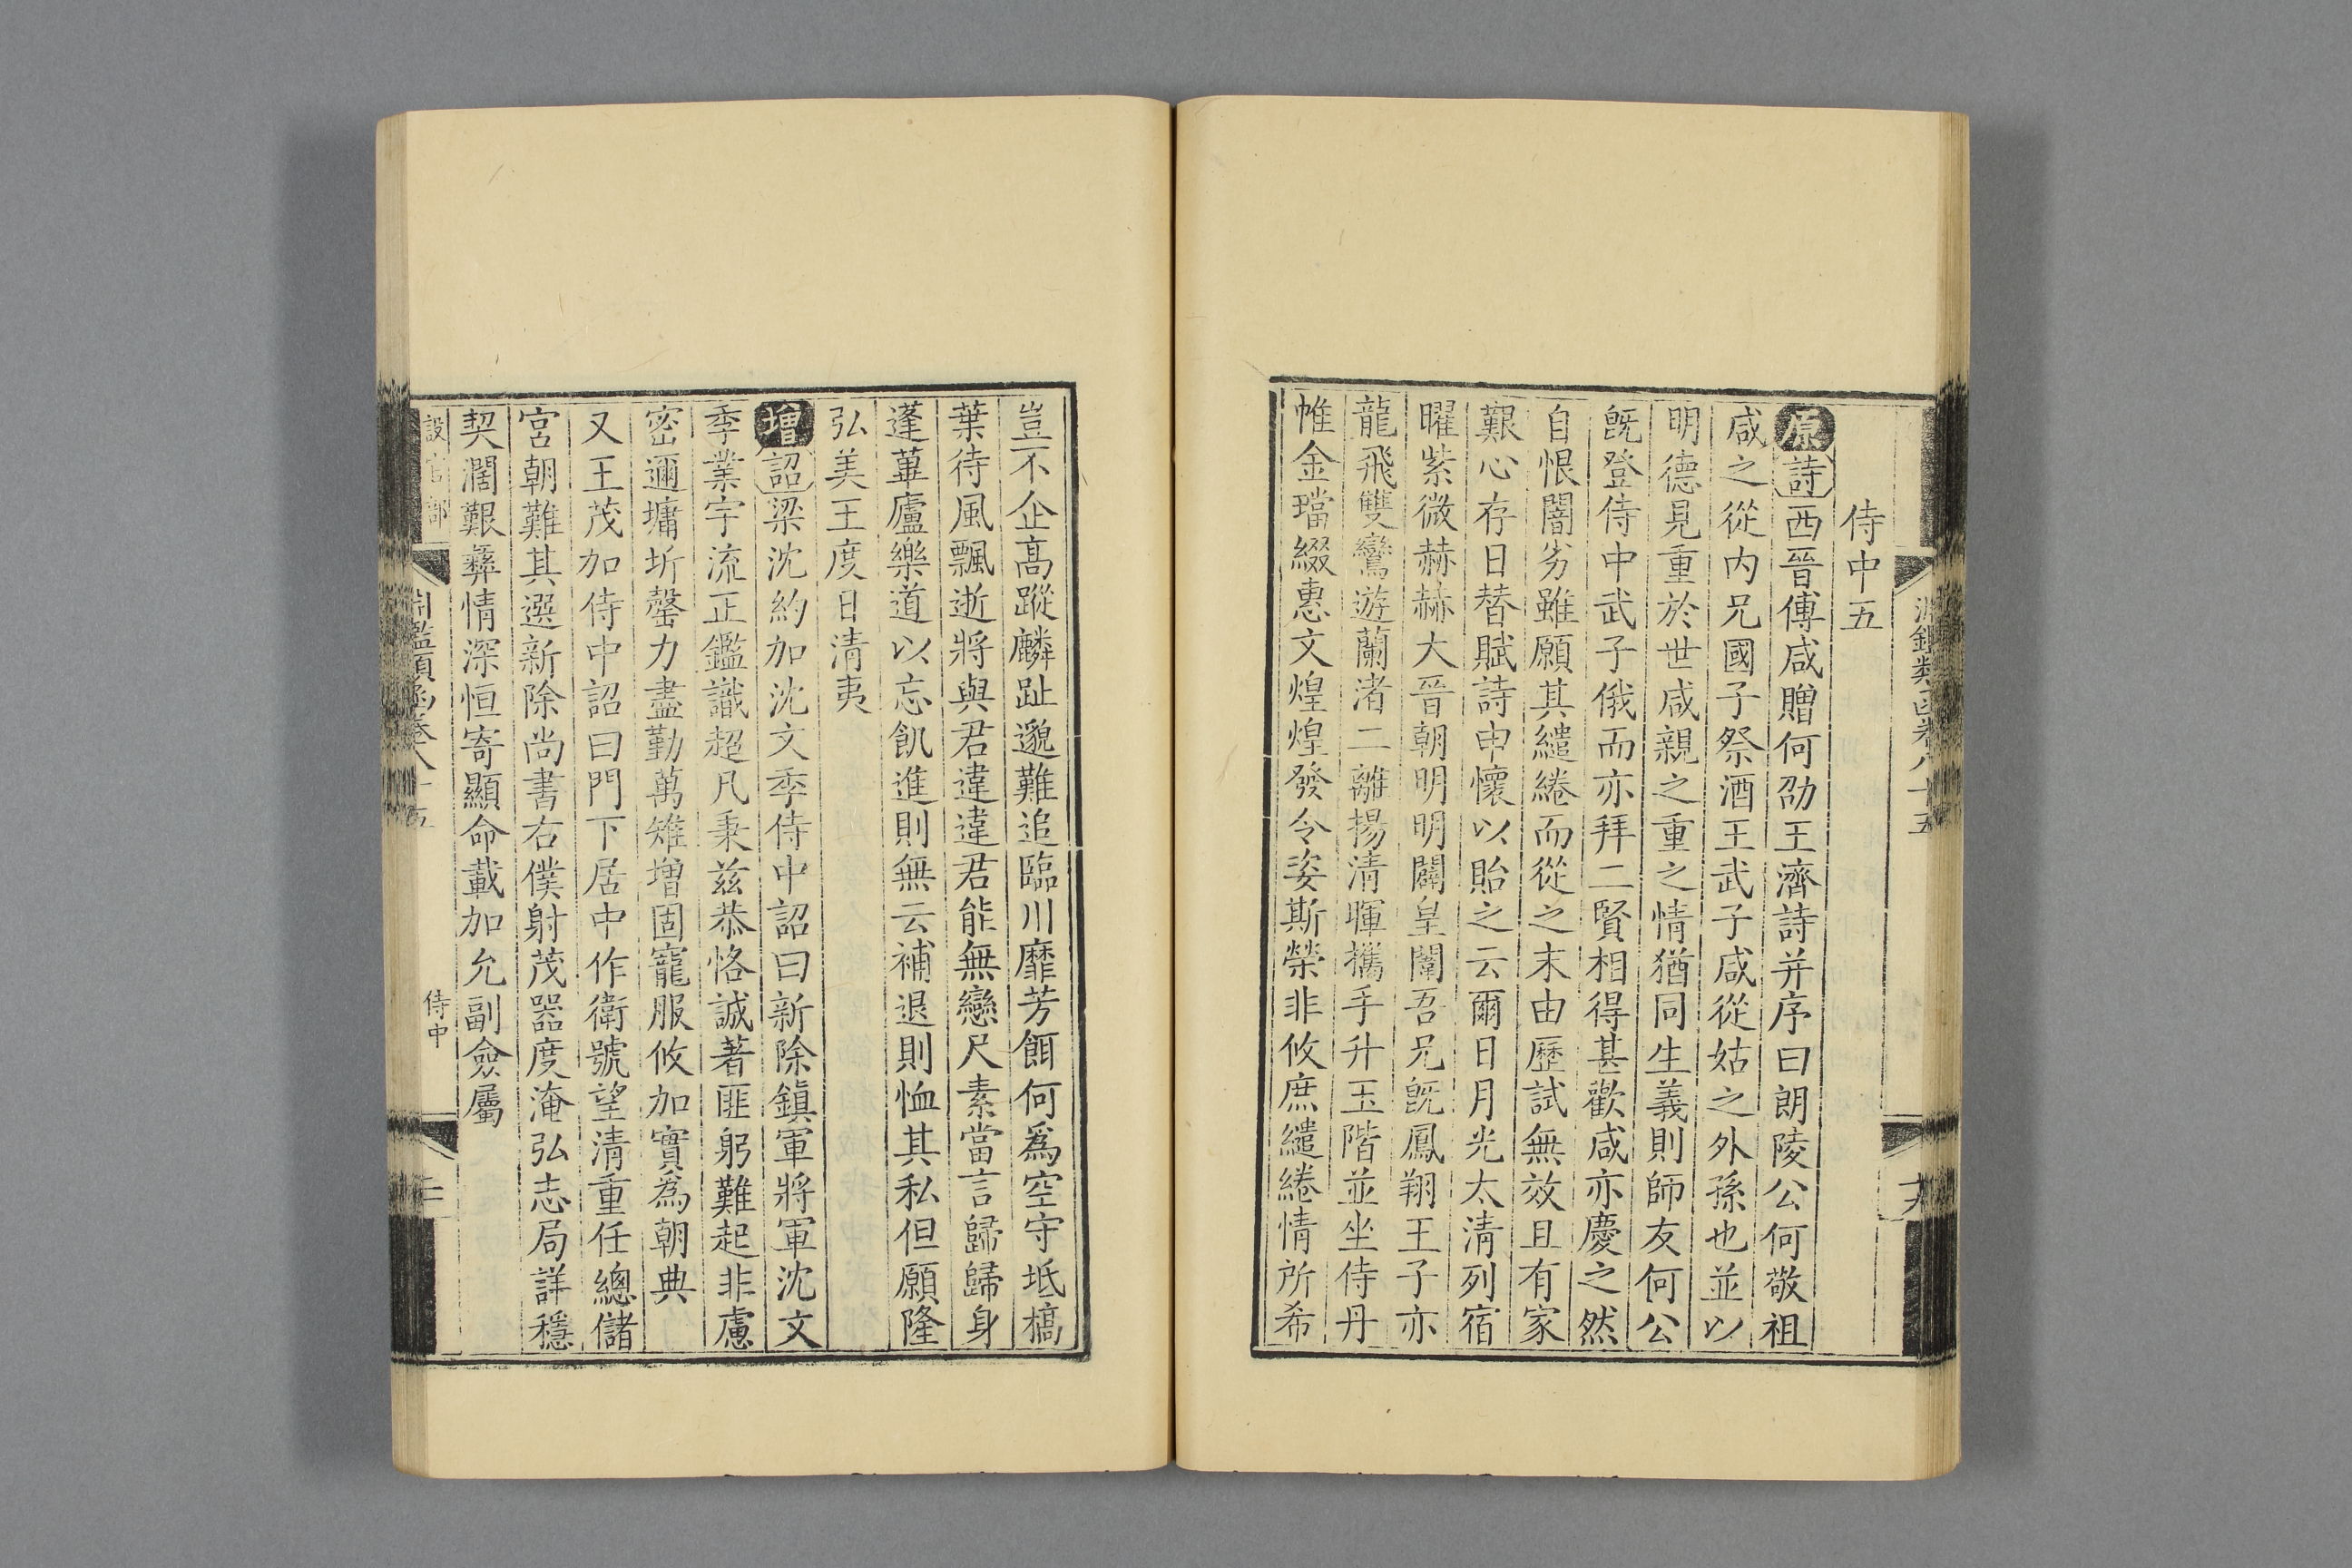 侍中五
原詩西晉傅咸贈何劭王濟詩并序曰朗陵公何敬祖
咸之從內兄國子祭酒王武子咸從姑之外孫也並以
明德見重於世咸親之重之情猶同生義則師友何公
旣登侍中武子俄而亦拜二賢相得甚歡咸亦慶之然
自恨闇劣雖願其繾綣而從之末由歷試無效且有家
艱心存日替賦詩申懷以貽之云爾日月光太清列宿
曜紫微赫赫大晉朝明明闢皇闈吾兄旣鳳翔王子亦
龍飛雙鸞遊蘭渚二離揚清暉攜手升玉階並坐侍丹
帷金璫綴惠文煌煌發令姿斯榮非攸庶繾綣情所希
豈不企高蹤麟趾邈難追臨川靡芳餌何爲空守坻槁
葉待風飄逝將與君違違君能無戀尺素當言歸歸身
蓬蓽廬樂道以忘飢進則無云補退則恤其私但願隆
弘美王度日清夷
增詔梁沈約加沈文季侍中詔曰新除鎭軍將軍沈文
季業宇流正鑑識超凡秉兹恭恪誠著匪躬難起非慮
密邇墉圻罄力盡勤萬雉增固寵服攸加實爲朝典
又王茂加侍中詔曰門下居中作衛號望清重任總儲
宮朝難其選新除尚書右僕射茂器度淹弘志局詳穩
契濶艱彝情深恒寄顯命載加允副僉屬
設官部
侍中